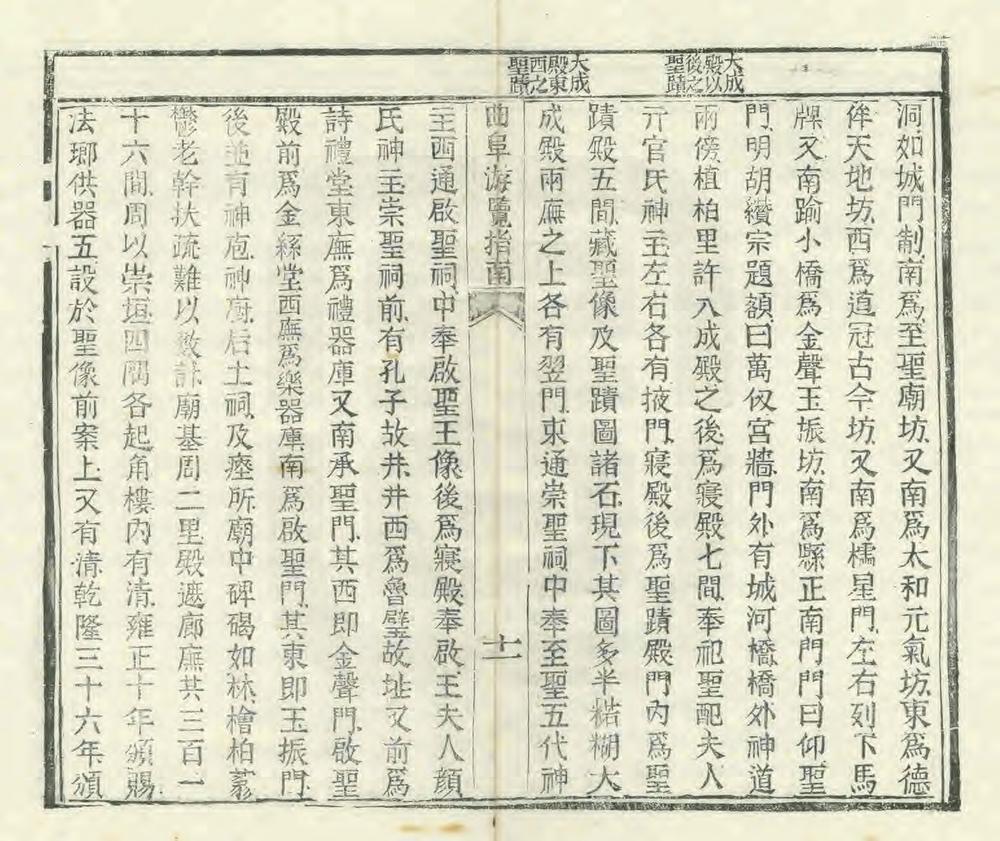 大成
殿以
後之
聖蹟
大成
殿東
西之
聖蹟
洞如城門制南爲至聖廟坊又南爲太和元氣坊東爲德
侔天地坊西爲道冠古今坊又南爲櫺星門左右列下馬
牌又南踰小橋爲金聲玉振坊南爲縣正南門門曰仰聖
門明胡纘宗題額曰萬仭宮牆門外有城河橋橋外神道
兩傍植柏里許大成殿之後爲寢殿七間奉祀聖配夫人
亓官氏神主左右各有掖門寢殿後爲聖蹟殿門內爲聖
蹟殿五間藏聖像及聖蹟圖諸石現下其圖多半糢糊大
成殿兩廡之上各有翌門東通崇聖祠中奉至聖五代神
曲阜游覽指南
十一
主西通啟聖祠中奉啟聖王像後爲寢殿奉啟王夫人顏
氏神主崇聖祠前有孔子故井井西爲魯壁故址又前爲
詩禮堂東廡爲禮器庫又南承聖門其西即金聲門啟聖
殿前爲金絲堂西廡爲樂器庫南爲啟聖門其東即玉振門
後並有神庖神廚后土祠及瘞所廟中碑碣如林檜柏蓊
鬱老幹扶疏難以數計廟基周二里殿遞廊廡共三百一
十六間周以崇垣四隅各起角樓內有清雍正十年頒賜
法瑯供器五設於聖像前案上又有清乾隆三十六年頒